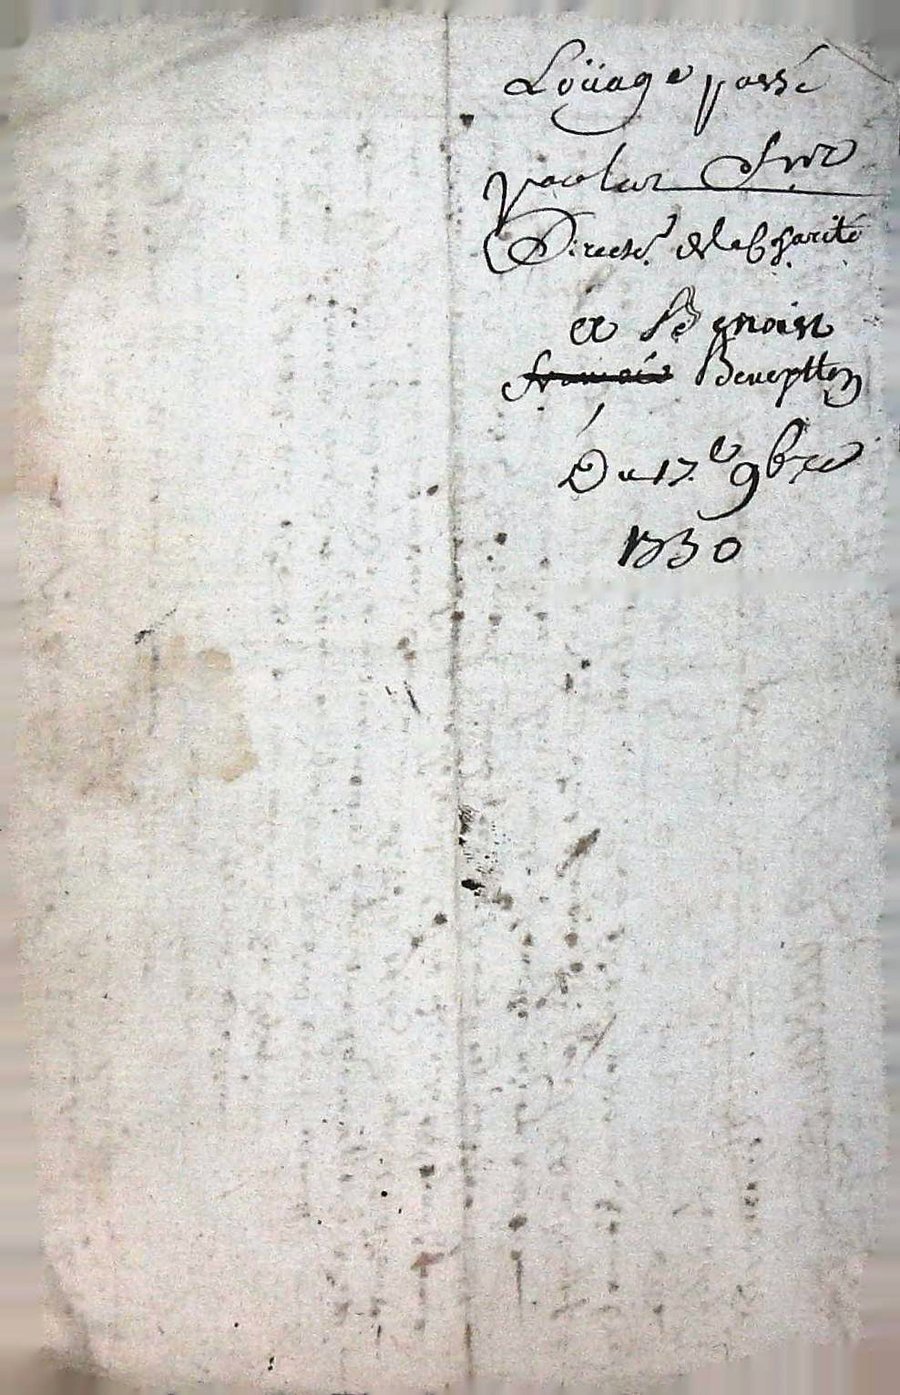 Loüage passé
par les Srs
Directrs. de la Charité
et Benoist
françois Beneptton
Du 17.e 9bre
1730